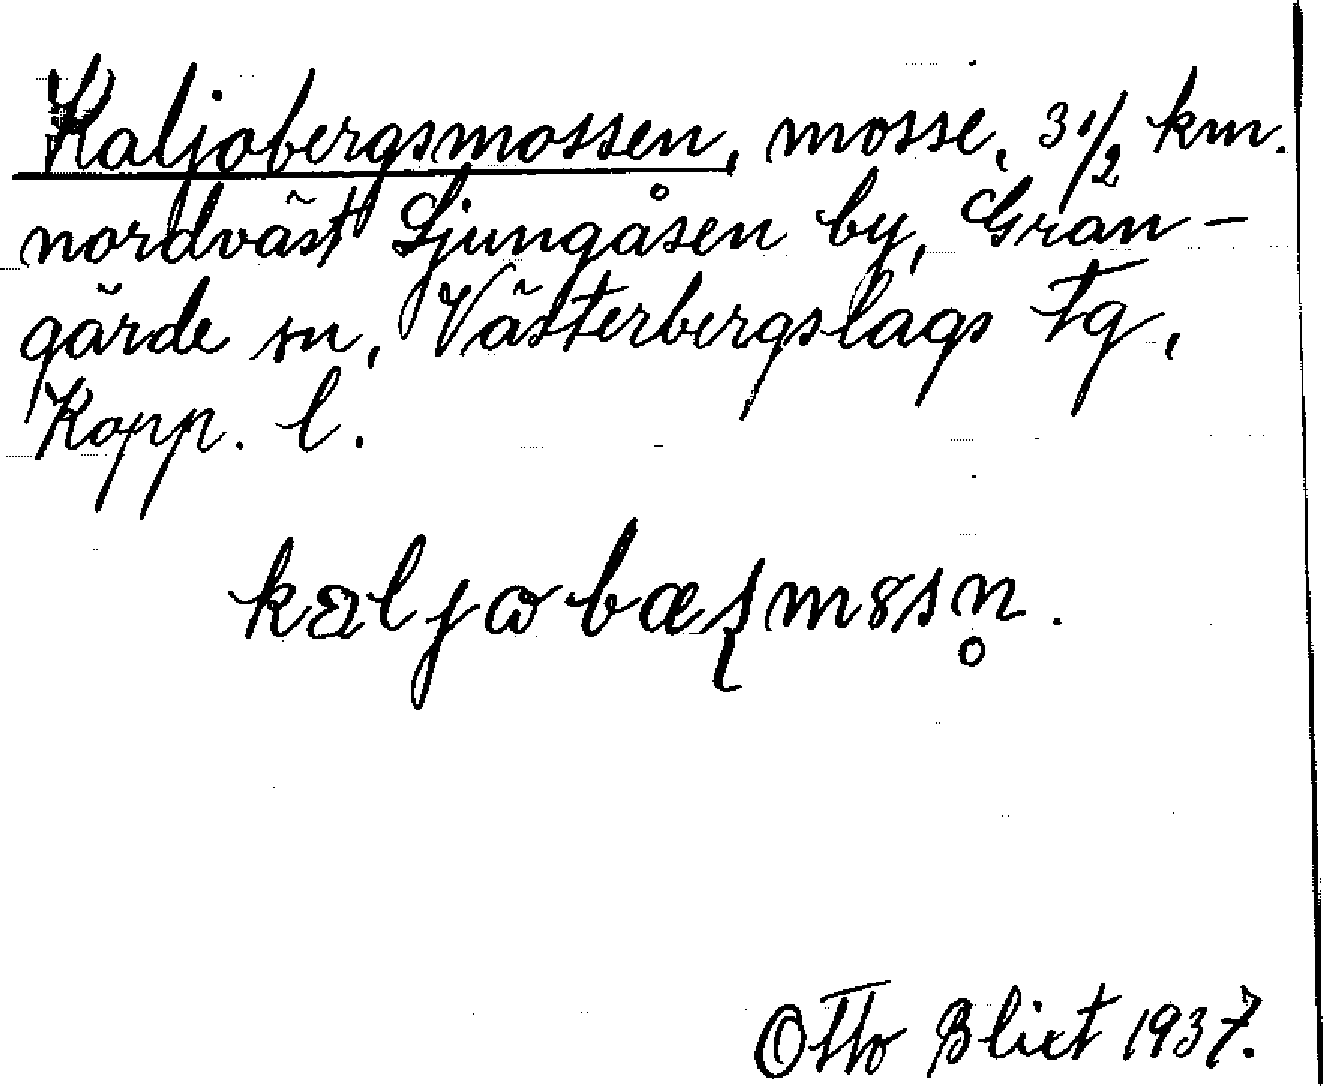 Kaljobergsmossen, mosse, 3 1/2 km.
nordväst Ljungåsen by, Gran-
gärde sn, Västerbergslags fg,
Kopp. l.
Otto Blixt 1937.